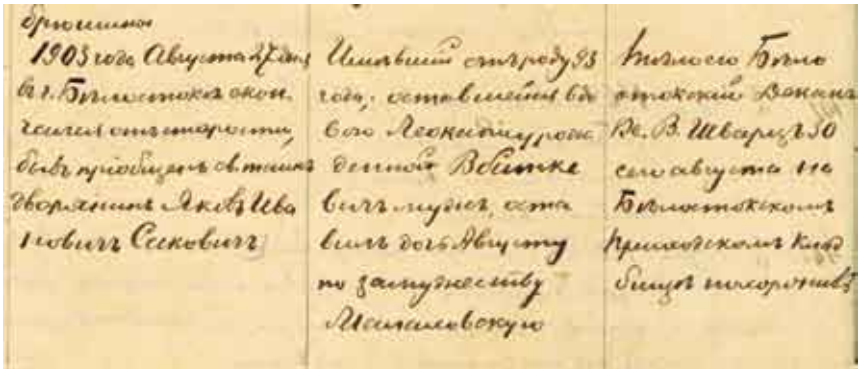 брюшины
1903 года Августа 27 дня
въ г. Бѣлостокѣ скон
чался отъ старости,
бывъ приобщенъ св. таинъ
дворянинъ Яковъ Ива
новичъ Саковичъ
Имѣвший отъ роду 93
года, оставшейся вдо
вою Леокадии урож
денной Войтке
вичъ мужъ, оста
вилъ дочь Августу
по замужеству
Тѣло его Бѣло
стокский Деканъ
Кс. В. Шварцъ 30
сего августа на
Бѣлостокскомъ
приходскомъ клад
бищѣ похоронивъ